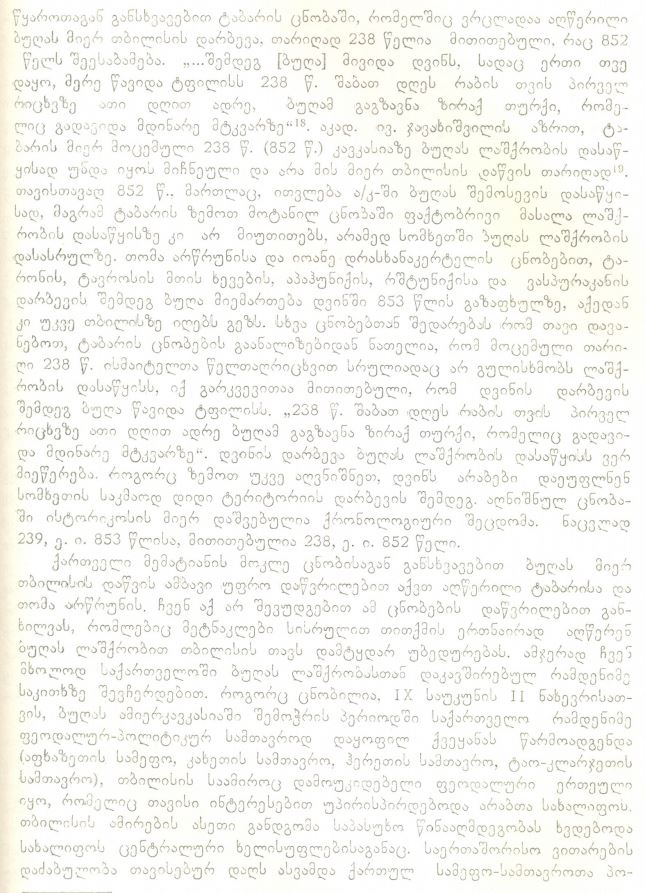 წყაროთაგან განსხვავებით ტაბარის ცნობაში, რომელშიც ვრცლადაა აღწერილი
ბუღას მიერ თბილისის დარბევა, თარიღად 238 წელია მითითებული, რაც 852
წელს შეესაბამება. „...შემდეგ [ბუღა] მივიდა დვინს, სადაც ერთი თვე
დაყო, მერე წავიდა ტფილისს 238 წ. შაბათ დღეს რაბის თვის პირველ
რიცხვზე ათი დღით ადრე, ბუღამ გაგზავნა ზირაქ თურქი, რომე-
ლიც გადავიდა მდინარე მტკვარზე“¹⁸. აკად. ივ. ჯავახიშვილის აზრით, ტა-
ბარის მიერ მოცემული 238 წ. (852 წ.) კავკასიაზე ბუღას ლაშქრობის დასაწ-
ყისად უნდა იყოს მიჩნეული და არა მის მიერ თბილისის დაწვის თარიღად¹⁹.
თავისთავად 852 წ., მართლაც, ითვლება ა/კ-ში ბუღას შემოსევის დასაწყი-
სად, მაგრამ ტაბარის ზემოთ მოტანილ ცნობაში ფაქტობრივი მასალა ლაშქ-
რობის დასაწყისზე კი არ მიუთითებს, არამედ სომხეთში ბუღას ლაშქრობის
დასასრულზე. თომა არწრუნისა და იოანე დრასხანაკერტელის ცნობებით, ტა-
რონის, ტავროსის მთის ხევების, აპაჰუნიქის, რშტუნიქისა და ვასპურაკანის
დარბევის შემდეგ ბუღა მიემართება დვინში 853 წლის გაზაფხულზე, აქედან
კი უკვე თბილისზე იღებს გეზს. სხვა ცნობებთან შედარებას რომ თავი დავა-
ნებოთ, ტაბარის ცნობების გაანალიზებიდან ნათელია, რომ მოცემული თარი-
ღი 238 წ. ისმაიტელთა წელთაღრიცხვით სრულიადაც არ გულისხმობს ლაშქ-
რობის დასაწყისს, იქ გარკვევითაა მითითებული, რომ დვინის დარბევის
შემდეგ ბუღა წავიდა ტფილისს. „238 წ. შაბათ დღეს რაბის თვის პირველ
რიცხვზე ათი დღით ადრე ბუღამ გაგზავნა ზირაქ თურქი, რომელიც გადავი-
და მდინარე მტკვარზე“. დვინის დარბევა ბუღას ლაშქრობის დასაწყისს ვერ
მიეწერება. როგორც ზემოთ უკვე აღვნიშნეთ, დვინს არაბები დაეუფლნენ
სომხეთის საკმაოდ დიდი ტერიტორიის დარბევის შემდეგ. აღნიშნულ ცნობა-
ში ისტორიკოსის მიერ დაშვებულია ქრონოლოგიური შეცდომა. ნაცვლად
239, ე. ი. 853 წლისა, მითითებულია 238, ე. ი. 852 წელი.
ქართველი მემატიანის მოკლე ცნობისაგან განსხვავებით ბუღას მიერ
თბილისის დაწვის ამბავი უფრო დაწვრილებით აქვთ აღწერილი ტაბარისა და
თომა არწრუნის. ჩვენ აქ არ შევუდგებით ამ ცნობების დაწვრილებით გან-
ხილვას, რომლებიც მეტნაკლები სისრულით თითქმის ერთნაირად აღწერენ
ბუღას ლაშქრობით თბილისის თავს დამტყდარ უბედურებას. ამჯერად ჩვენ
მხოლოდ საქართველოში ბუღას ლაშქრობასთან დაკავშირებულ რამდენიმე
საკითხზე შევჩერდებით. როგორც ცნობილია, IX საუკუნის II ნახევრისათ-
ვის, ბუღას ამიერკავკასიაში შემოჭრის პერიოდში საქართველო რამდენიმე
ფეოდალურ-პოლიტიკურ სამთავროდ დაყოფილ ქვეყანას წარმოადგენდა
(აფხაზეთის სამეფო, კახეთის სამთავრო, ჰერეთის სამთავრო, ტაო-კლარჯეთის
სამთავრო), თბილისის საამიროც დამოუკიდებელი ფეოდალური ერთეული
იყო, რომელიც თავისი ინტერესებით უპირისპირდებოდა არაბთა სახალიფოს.
თბილისის ამირების ასეთი განდგომა საპასუხო წინააღმდეგობას ხვდებოდა
სახალიფოს ცენტრალური ხელისუფლებისაგანაც. საერთაშორისო ვითარების
დაძაბულობა თავისებურ დაღს ასვამდა ქართულ სამეფო-სამთავროთა პო-